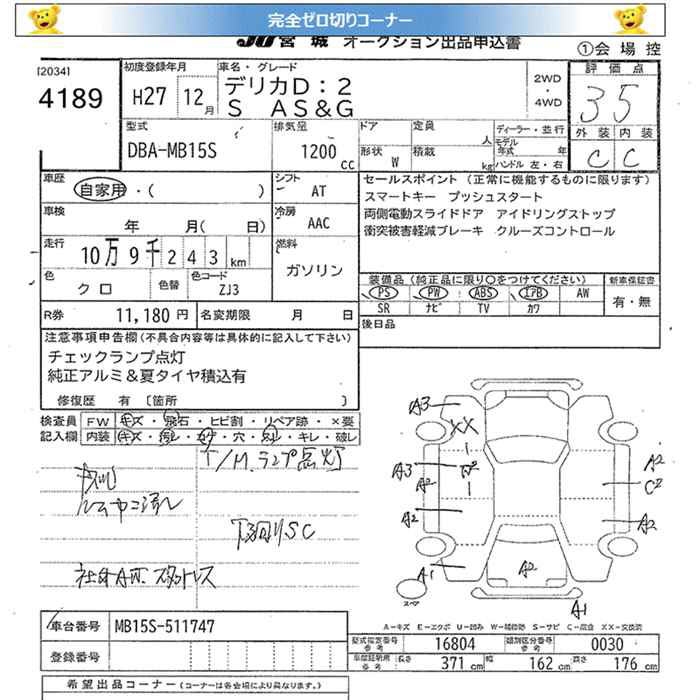 完全ゼロ切りコーナー
JU 宮城 オークション出品申込書
①会場控
[2034]
4189
初度登録年月
H27 12月
車名・グレード
デリカD：2
S AS&G
2WD
・
4WD
評価点
35
外装 内装
C C
型式
DBA-MB15S
排気量
1200 cc
ドア
定員 人
形状 W
積載 kg
ディーラー・並行
モデル年式 年
ハンドル 左・右
車歴
自家用・( )
シフト
AT
車検
年 月( 日)
冷房
AAC
走行
10万9千243km
燃料
ガソリン
色
クロ
色替
色コード
ZJ3
R券
11,180 円
名変期限 月 日
セールスポイント (正常に機能するものに限ります)
スマートキー プッシュスタート
両側電動スライドドア アイドリングストップ
衝突被害軽減ブレーキ クルーズコントロール
装備品 (純正品に限り○をつけてください)
新車保証書
PS PW ABS エアB AW
SR ナビ TV カワ
有・無
後日品
注意事項申告欄(不具合内容等は具体的に記入して下さい)
チェックランプ点灯
純正アルミ&夏タイヤ積込有
修復歴 有 〔箇所 〕
検査員記入欄
FW キズ・飛石・ヒビ割・リペア跡・×要
内装 キズ・汚レ・コゲ・穴・スレ・キレ・破レ
T/M.ランプ点灯
下廻りSC
社外AW.スタットレス
A3
XX
A3
A2
A2
A1
A2
C2
A2
A2
A1
スペア
A－キズ E－エクボ U－凹み W－補修跡 S－サビ C－腐食 XX－交換済
車台番号
MB15S-511747
登録番号
型式指定番号
参考
16804
類別区分番号
参考
0030
車庫証明用
参考
長さ 371 cm
幅 162 cm
高さ 176 cm
希望出品コーナー (コーナーは各会場により異なります。)